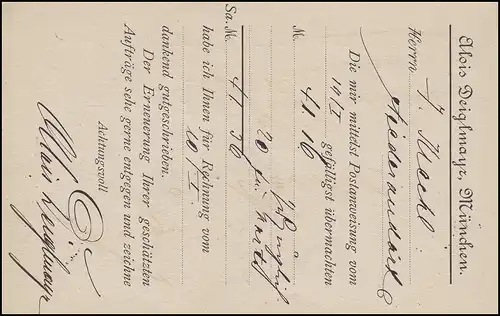 Alois Deiglmayr, München.
Herrn J. Meckl
Niederaudorf
Die mir mittelst Postanweisung vom
19/I gefälligst übermachten
M. 41.16
20
Sa. M. 41 36
habe ich Ihnen für Rechnung vom
10/I.
dankend gutgeschrieben.
Der Erneuerung Ihrer geschätzten
Aufträge sehe gerne entgegen und zeichne
Achtungsvoll
Alois Deiglmayr